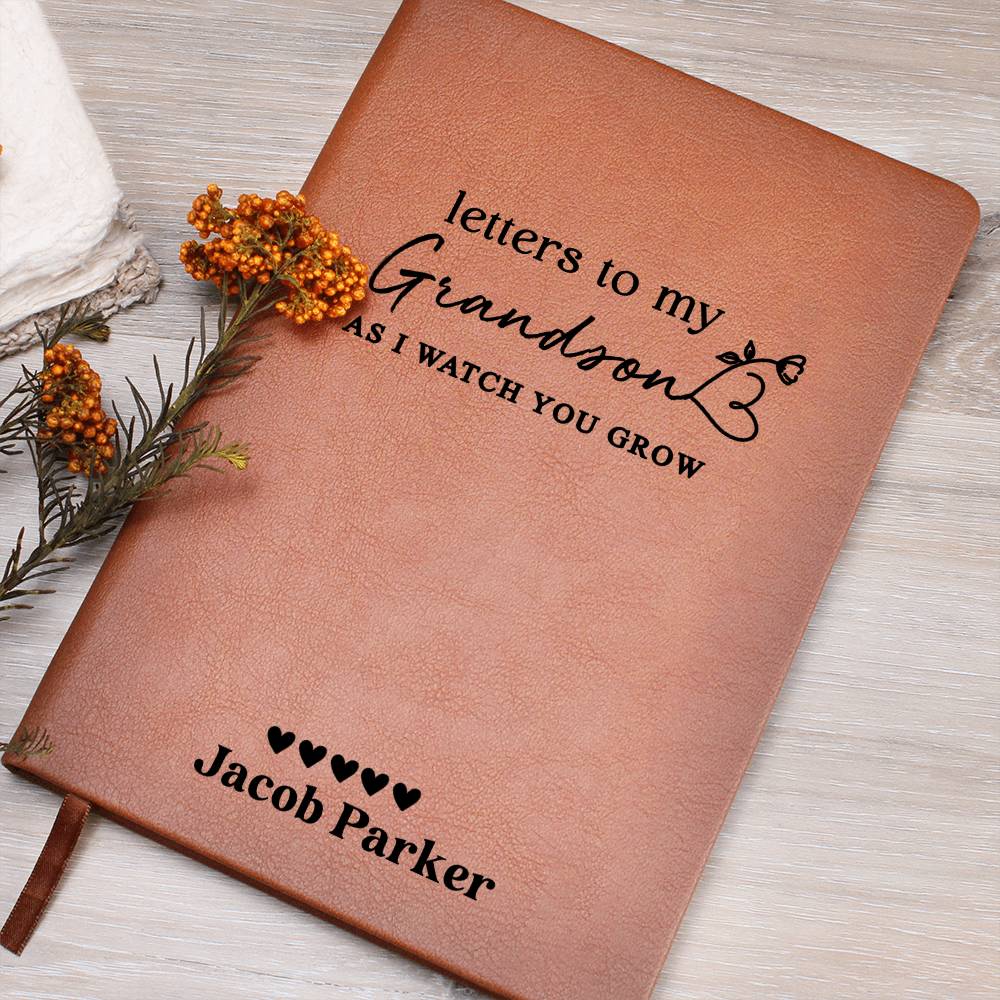 letters to my
Grandson
AS I WATCH YOU GROW
Jacob Parker